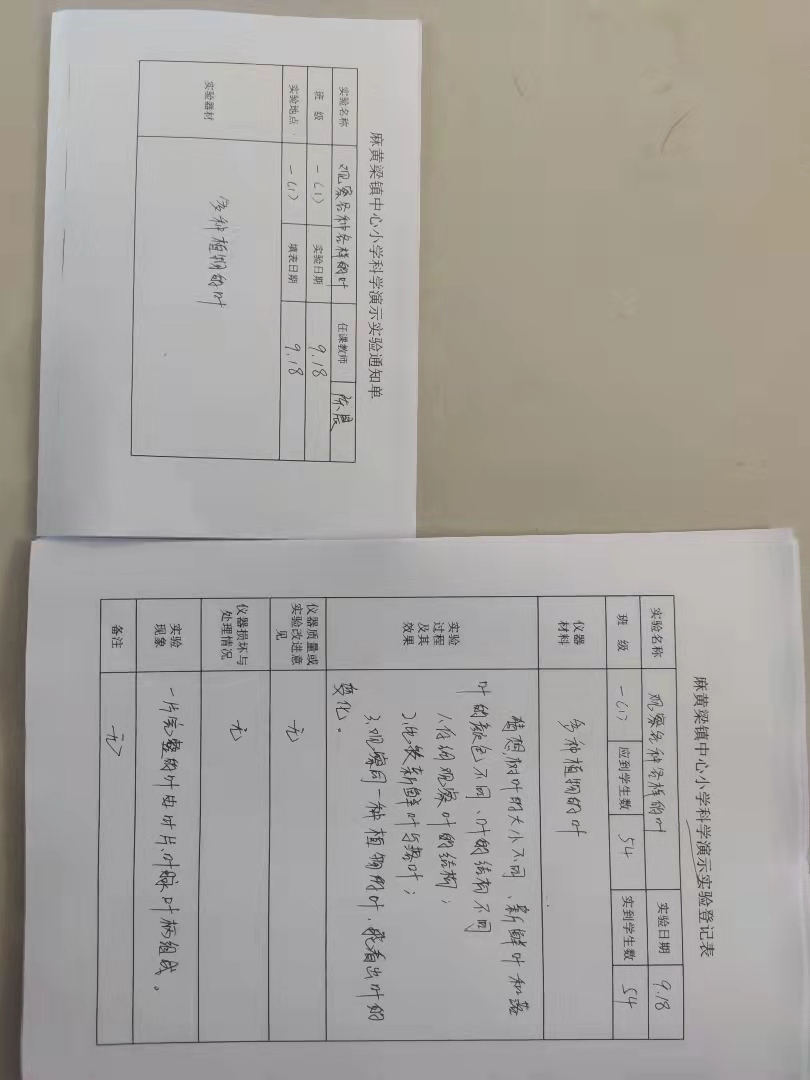 麻黄梁镇中心小学科学演示实验通知单
实验名称 观察各种各样的叶 任课教师 陈晨
班 级 一(1) 实验日期 9.18
实验地点 一(1) 填表日期 9.18
实验器材 多种植物的叶
麻黄梁镇中心小学科学演示实验登记表
实验名称 观察各种各样的叶 实验日期 9.18
班 级 一(1) 应到学生数 54 实到学生数 54
仪器材料 多种植物的叶
实验过程及其效果
猜想:树叶的大小不同、新鲜叶和落
叶的颜色不同、叶的结构不同
1.仔细观察叶的结构;
2.比较新鲜叶与落叶;
3.观察同一种植物的叶,能看出叶的
变化。
仪器质量或实验改进意见 无
仪器损坏与处理情况 无
实验现象 一片完整的叶由叶片、叶脉、叶柄组成。
备注 无